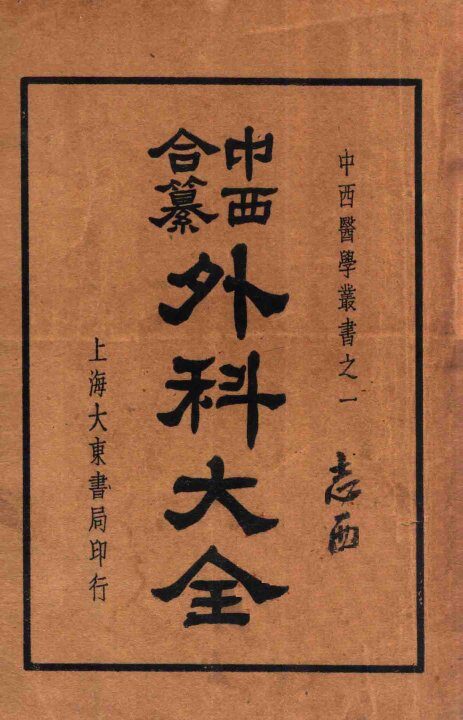 中西醫學叢書之一
志西
中西
合纂
外科大全
上海大東書局印行